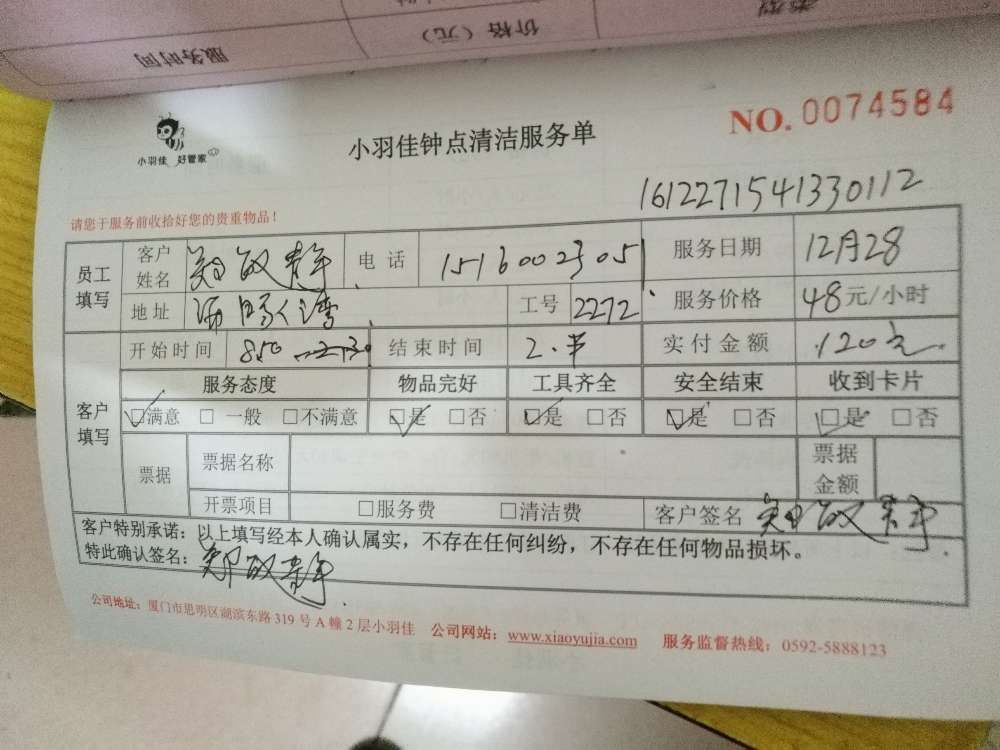 服务时间 价格（元） 类型
小羽佳 好管家
小羽佳钟点清洁服务单
NO. 0074584
1612271541330112
请您于服务前收拾好您的贵重物品！
员工填写 客户姓名 郑敏静 电话 15160023051 服务日期 12月28
地址 工号 2272 服务价格 48元/小时
客户填写 开始时间 850 结束时间 2.半 实付金额 120元
服务态度 物品完好 工具齐全 安全结束 收到卡片
☑满意 □一般 □不满意 ☑是 □否 ☑是 □否 ☑是 □否 ☑是 □否
票据 票据名称 票据金额
开票项目 □服务费 □清洁费 客户签名 郑敏静
客户特别承诺：以上填写经本人确认属实，不存在任何纠纷，不存在任何物品损坏。
特此确认签名：郑敏静
公司地址：厦门市思明区湖滨东路319号A幢2层小羽佳 公司网站：www.xiaoyujia.com 服务监督热线：0592-5888123